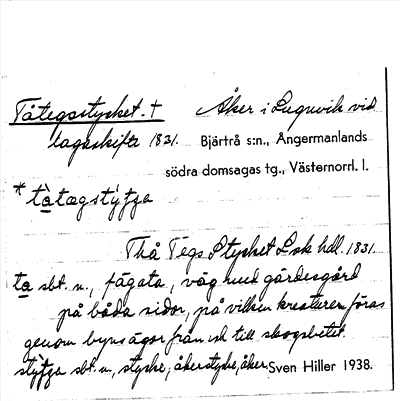 Tåtegsstycket. † Åker i Lugnvik vid
lagaskifte 1831. Bjärtrå s:n., Ångermanlands
södra domsagas tg., Västernorrl. l.
* tàtægstýʃʒa
Thå Tegs Stycket Lsk hdl. 1831.
ta sbt. n., fägata, väg med gärdesgård
på båda sidor, på vilken kreaturen föras
genom byns ägor från och till skogsbetet.
stýʃʒa sbt. n., stycke; åkerstycke, åker Sven Hiller 1938.